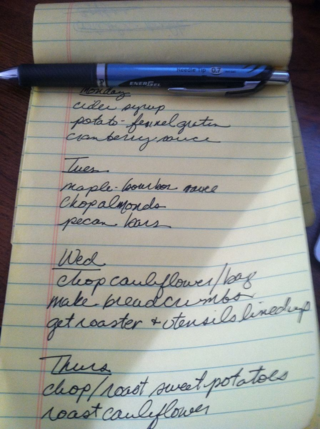 Monday
cider syrup
potato-fennel gratin
cranberry sauce
Tues
maple-bourbon sauce
chop almonds
pecan bars
Wed
chop cauliflower/bag
make breadcrumbs
get roaster + utensils lined up
Thurs
chop/roast sweet potatoes
roast cauliflower